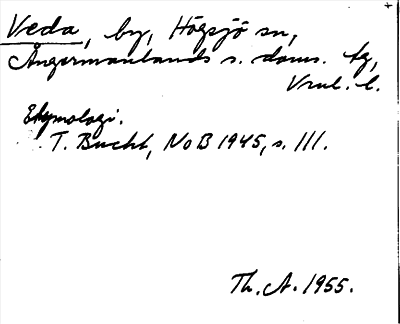 Veda, by, Högsjö sn,
Ångermanlands s. doms. tg,
Vnl. l.
Etymologi.
T. Bucht, NoB 1945, s. 111.
Th. A. 1955.